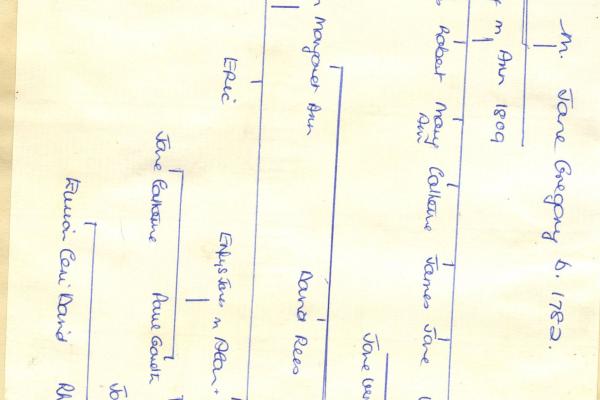 m. Jane Gregory b. 1782.
m Ann 1809
Robert Mary Ann Catherine James Jane
Margaret Ann David Rees
Jane
Eric
Enlys Jones m Alan
Jane Catherine Paul Gareth
Ceri David